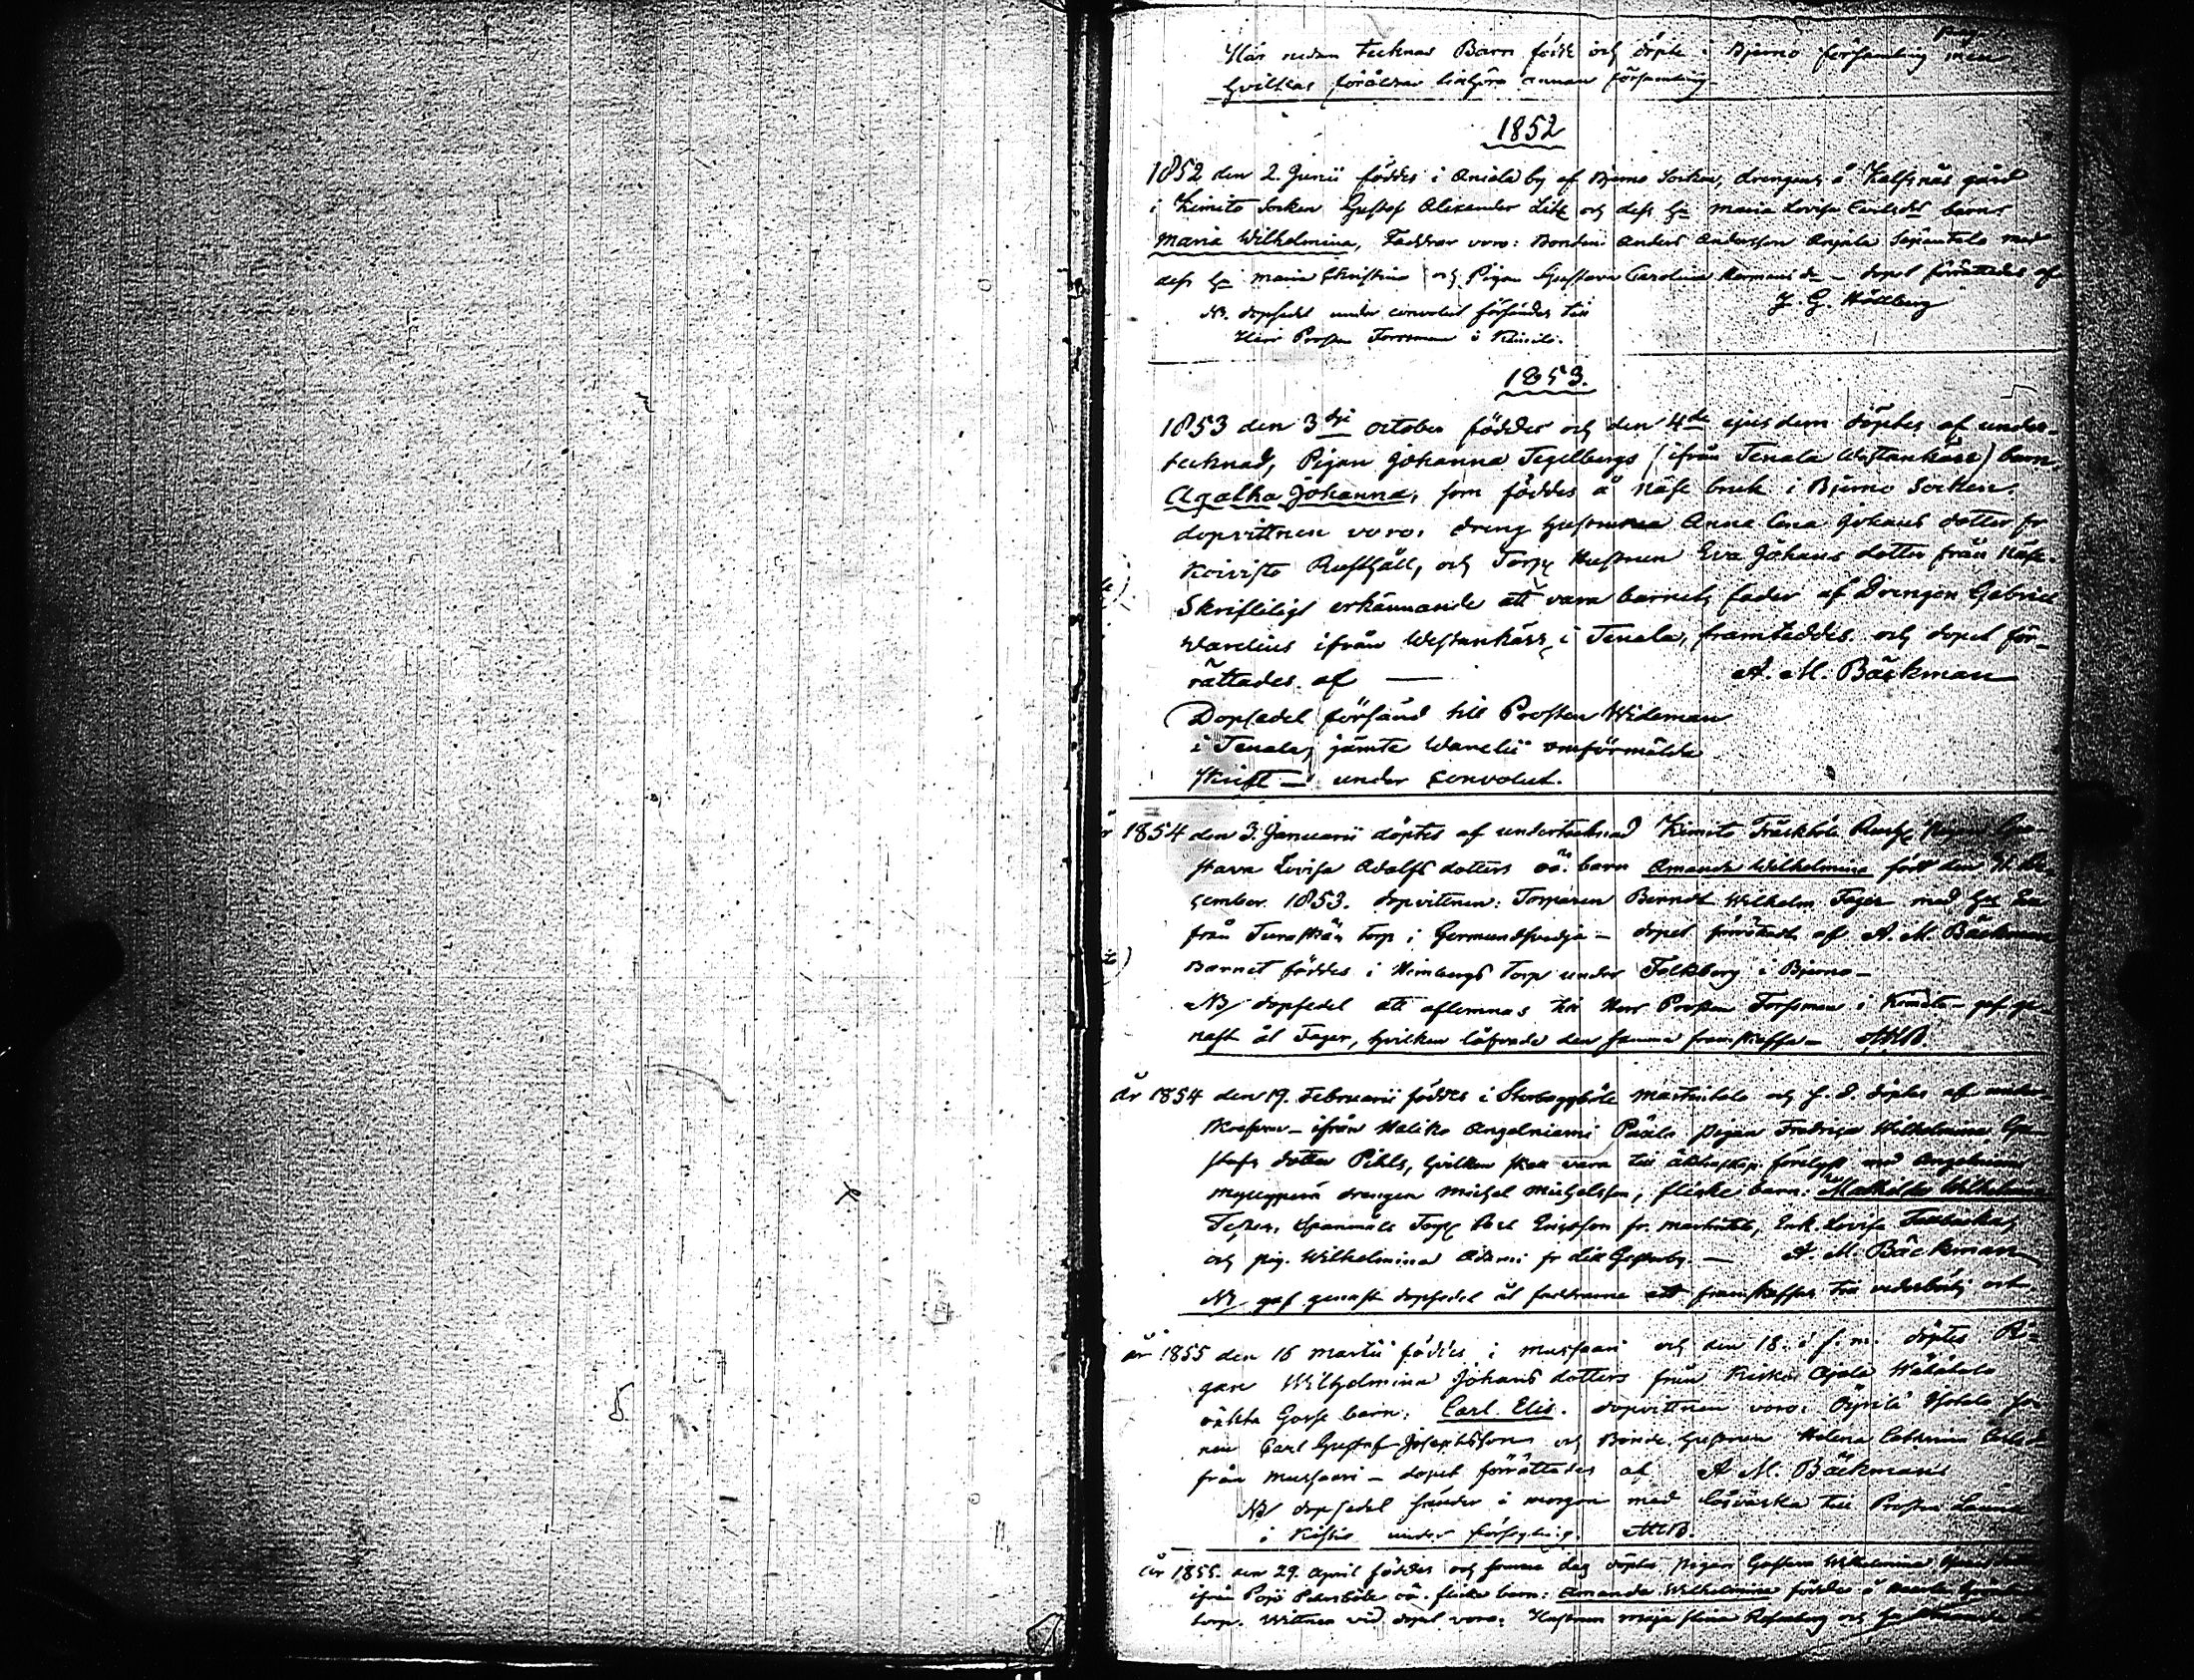 pag.
Här nedan tecknas Barn födde och döpte i Bjerno församling men
hvilkas föräldrar tillhöra annan församling
1852
1852 den 2. Junii föddes i Aniala by af Bjerno Socken, drengens å Kalfsnäs gård
i Kimito Socken Gustaf Alexander Lilj och dess h. Maria Lovisa Carlsdr barn:
Maria Wilhelmina, Faddrar voro: Bonden Anders Andersson Anjala Sepäntalo med
dess h. Maria Christina och Pigan Gustava Carolina Hermansdr – dopet förrättades af
J. G. Hållberg
NB. dopsedel under convolut försändes till
Herr Prosten Forssman i Kimito.
1853.
1853 den 3dje october föddes och den 4de ejusdem döptes af under-
tecknad, Pigan Johanna Tegelbergs (ifrån Tenala Westankärr) barn:
Agatha Johanna, som föddes å Näse bruk i Bjerno Socken.
dopvittnen voro: dreng hustrun Anna Lena Johans dotter fr
Koivisto Rusthåll, och Torp. Hustrun Eva Johans dotter från Näse.
Skriftligt erkännande att vara barnets fader af Drengen Gabriel
Warelius ifrån Westankärr i Tenala, framteddes och dopet för-
rättades af — A. M. Bäckman
Dopsedel försänd till Prosten Wideman
i Tenala, jämte Warelii omförmälda
skrift — under convolut.
år 1854 den 3. Januarii döptes af undertecknad Kimito Träskböle Rusth. Pigan Gu-
stava Lovisa Adolfs dotters oä. barn Amanda Wilhelmina född den De-
cember 1853. dopvittnen: Torparen Berndt Wilhelm Fager med h. Eva
från Turaskär torp i Germundsvedja – dopet förrättadt af A. M. Bäckman
Barnet föddes i Himbergs Torp under Falkberg i Bjerno –
NB dopsedel att aflemnas till Herr Prosten Forssman i Kimito – gafs ge-
nast åt Fager, hvilken låfvade den samma framskaffa – AMB.
år 1854 den 19. Februarii föddes i Skoböle Martintalo och s. d. döptes af under-
skrefven – ifrån Haliko Angelniemi Päälo pigan Fredrica Wilhelmina Gu-
stafs dotter Pihls, hvilken skall vara till äktenskap förelyst med Angelniemi
drengen Michel Michelsson, flicke barn: Mathilda Wilhelmina
Test. Torp. Carl Ericsson fr. Martintalo, Enk. Lovisa
och pig. Wilhelmina fr Lill — A. M. Bäckman
NB gaf genast dopsedel åt faddrarne att framskaffas till vederbörlig ort
år 1855 den 16 Martii föddes i Mussaari och den 18. i s. m. döptes Pi-
gan Wilhelmina Johans dotters från Kisko Ajala
oäkta Gosse barn: Carl Elis. dopvittnen voro:
Carl Gustaf Josephsson och Bonde hustrun Helena Catharina Carlsdr
från Mussaari – dopet förrättades af A. M. Bäckman
NB dopsedel sändes i morgon med lösväska till Prosten
i Kisko under försegling. AMB.
år 1855. den 29. April föddes och samma dag döptes pigan Gustava Wilhelmina
ifrån Pojo Petersböle oä. flicke barn: Amanda Wilhelmina födda å
torp. Wittnen vid dopet voro: Hustrun Maja Stina Rosenberg och